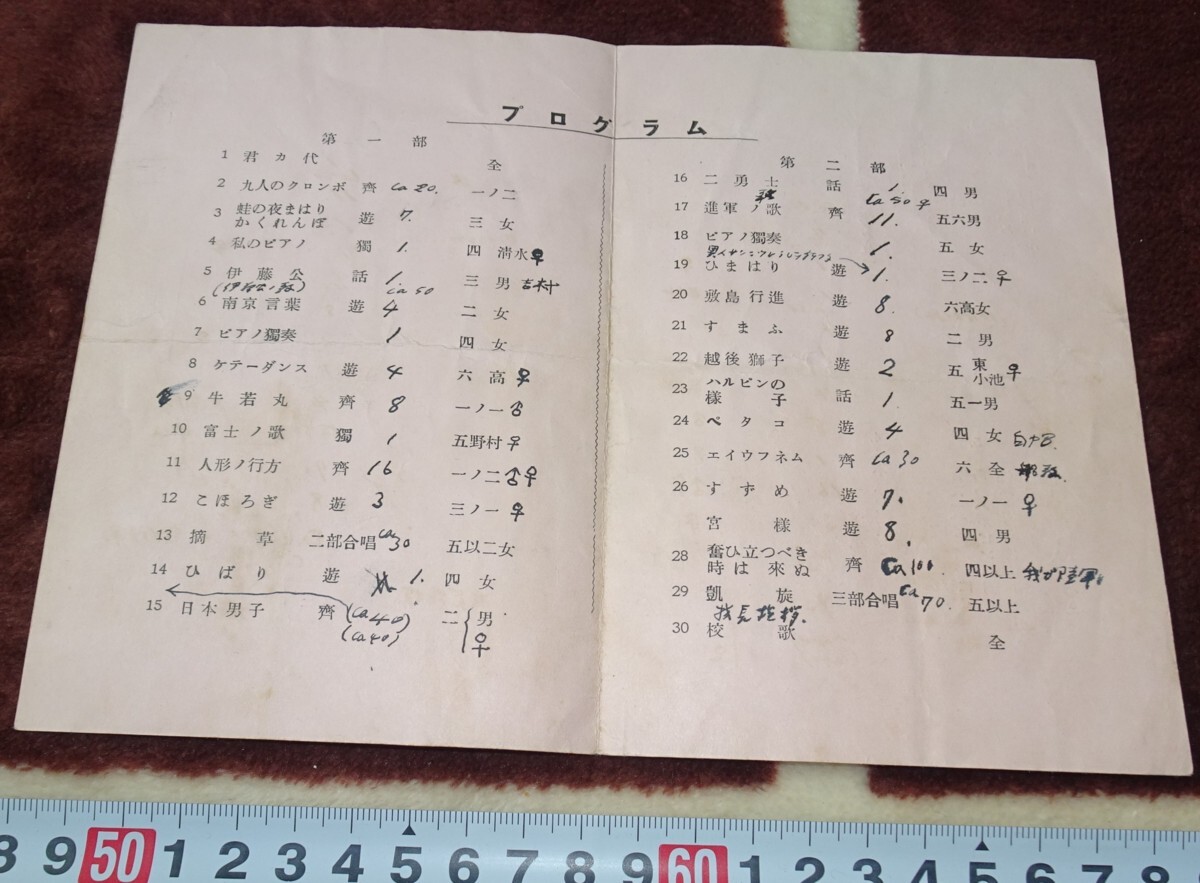 プログラム
第一部
1 君カ代 全
2 九人のクロンボ 齊 ca 20. 一ノ二
3 蛙の夜まはり かくれんぼ 遊 7. 三女
4 私のピアノ 獨 1. 四 清水♀
5 伊藤公 話 1. 三男 吉村
ca 50
6 南京言葉 遊 4 二女
7 ピアノ獨奏 1 四女
8 ケテーダンス 遊 4 六高♀
9 牛若丸 齊 8 一ノ一♂
10 富士ノ歌 獨 1 五野村♀
11 人形ノ行方 齊 16 一ノ二♂♀
12 こほろぎ 遊 3 三ノ一♀
13 摘草 二部合唱 ca 30 五以二女
14 ひばり 遊 1. 四女
15 日本男子 齊 (ca 40) 二{男
(ca 40) ♀
第二部
16 二勇士 話 1. 四男
ca 50 ♀
17 進軍ノ歌 齊 11. 五六男
18 ピアノ獨奏 1. 五女
19 ひまはり 遊 1. 三ノ二♀
20 敷島行進 遊 8. 六高女
21 すまふ 遊 8 二男
22 越後獅子 遊 2 五 東 小池♀
23 ハルピンの 様子 話 1. 五一男
24 ペタコ 遊 4 四女
25 エイウフネム 齊 ca 30 六全
26 すずめ 遊 7. 一ノ一♀
宮様 遊 8. 四男
28 奮ひ立つべき 時は來ぬ 齊 ca 100 四以上
29 凱旋 三部合唱 ca 70. 五以上
校長挨拶.
30 校歌 全
8 9 50 1 2 3 4 5 6 7 8 9 60 1 2 3 4 5 6 7 8